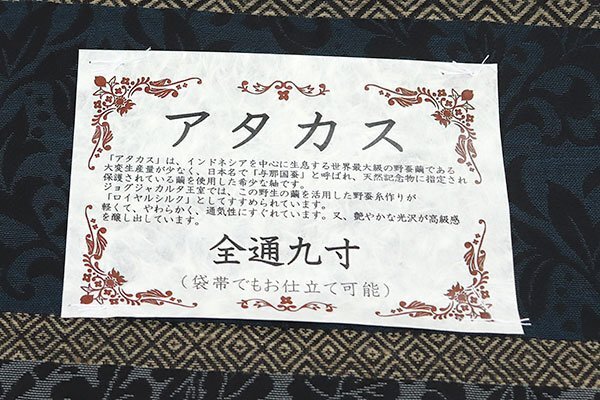 アタカス
「アタカス」は、インドネシアを中心に生息する世界最大級の野蚕繭である
大変生産量が少なく、日本名で「与那国蚕」と呼ばれ、天然記念物に指定され
保護されている繭を使用した希少な紬です。
ジョグジャカルタ王室では、この野生の繭を活用した野蚕糸作りが
「ロイヤルシルク」としてすすめられています。
軽くて、やわらかく、通気性にすぐれています。又、艶やかな光沢が高級感
を醸し出しています。
全通九寸
(袋帯でもお仕立て可能)